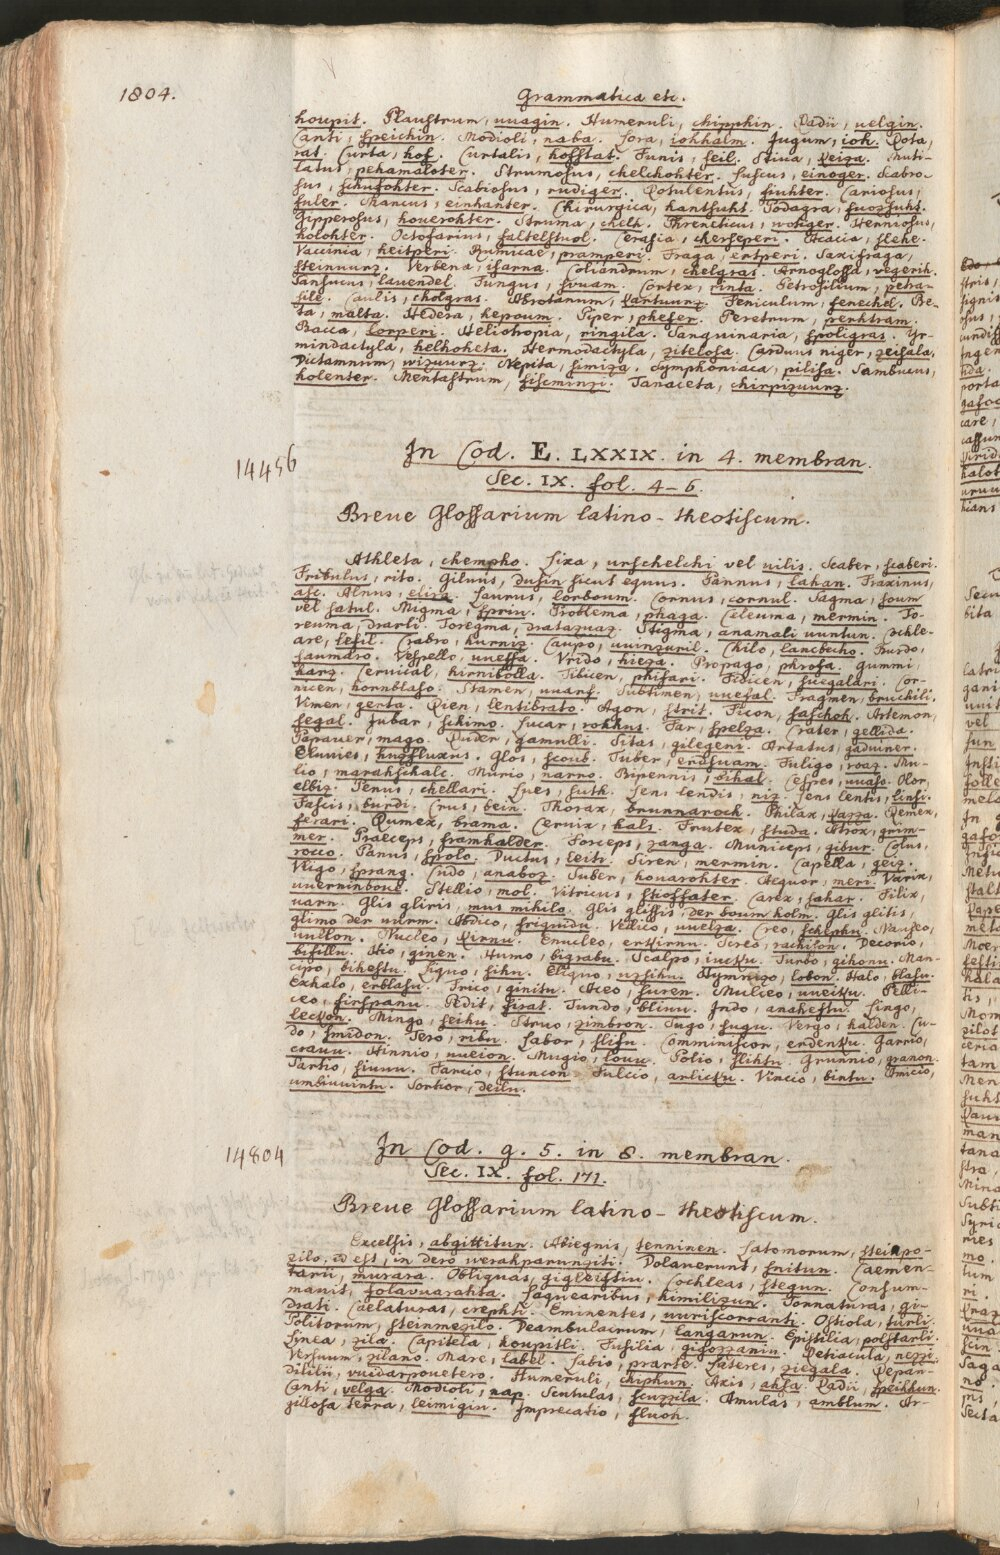 1804.
Grammatica etc.
houpit. Plaustrum, uuagin. Humeruli, chipphin. Radii, uelgin.
Canti, speichin. Modioli, naba. Lora, iohhalm. Jugum, ioh. Rota,
rat. Curta, hof. Curtalis, hofstat. Funis, seil. Stiua, Reiza. Muti-
latus, pehamaloter. Strumosus, chelchohter. Luscus, einoger. Scabro-
sus, schufohter. Scabiosus, rudiger. Rotulentus, siuhter. Cariosus,
fuler. Mancus, einhanter. Chirurgica, hantsuht. Podagra, fuozsuht.
Gipperosus, houerohter. Struma, chelh. Phreneticus, wotiger. Herniosus,
holohter. Octofarius, faltelstuol. Cerasia, cherseperi. Acacia, slehe.
Vaccinia, heitperi. Rumicae, pramperi. Fraga, ertperi. Saxifraga,
steinuurz. Verbena, isarna. Coliandrum, chelgras. Arnoglossa, wegerih.
Sansucus, lauendel. Fungus, suuam. Cortex, rinta. Petrosilium, petra-
sile. Caulis, cholgras. Abrotanum, Gartuurz. Feniculum, fenechel. Be-
ta, malta. Hedera, hepoum. Piper, phefer. Peretrum, perhtram.
Bacca, Lorperi. Heliotropia, ringila. Sanguinaria, spoligras. Yr-
mindactyla, helhoheta. Hermodactyla, zitelosa. Carduus niger, zeisala.
Dictamnum, wizuurz. Nepita, simiza. Symphoniaca, pilisa. Sambucus,
holenter. Mentastrum, sisiminzi. Tanaceta, chirpizuurz.
14456
In Cod. E. LXXIX. in 4. membran.
Sec. IX. fol. 4-6.
Breue Glossarium latino-theotiscum.
Athleta, chempho. Lixa, urschelchi vel uilis. Scaber, scaberi.
Tribulus, rito. Giluus, dusin sicut equus. Pannus, lahan. Fraxinus,
asc. Alnus, elira. Laurus, lorboum. Cornus, cornul. Sagma, soum
vel satul. Migma, sprin. Problema, phaga. Celeuma, mermin. To-
reuma, drarti. Toregma, dratazuaz. Stigma, anamali uuntun. Cochle-
are, lefil. Crabro, hurniz. Caupo, uuinzuril. Chilo, lancbecho. Burdo,
saumaro. Vespello, uueffa. Vrido, hieza. Propago, phrofa. Gummi,
harz. Ceruical, hirnibolla. Tibicen, phifari. Fidicen, suegalari. Cor-
nicen, hornblaso. Stamen, uuarf. Subtimen, uuefal. Fragmen, bruchili.
Vimen, gerta. Rien, lentibrato. Agon, strit. Ficon, faschoh. Artemon,
segal. Jubar, schimo. Lucar, rohhus. Far, spelza. Crater, gellida.
Papauer, mago. Ruder, gamulli. Sitas, gilegeri. Artatus, gaduiner.
Eluuies, huozfluxus. Glos, scoub. Tuber, erdsuam. Fuligo, roaz. Mu-
lio, marahschalc. Murio, narro. Bipennis, bihal. Cespes, uuaso. Olor,
elbiz. Penus, chellari. Lues, suht. Lens lendis, niz. Lens lentis, linsi.
Fascis, burdi. Crus, bein. Thorax, brunnaroch. Philax, Warza. Remex,
ferari. Rumex, brama. Ceruix, hals. Frutex, studa. Atrox, grim-
mer. Praeceps, framhalder. Forceps, zanga. Municeps, gibur. Colus,
rocco. Panus, spolo. Ductus, leitt. Siren, mermin. Capella, geiz.
Vligo, sprang. Cudo, anaboz. Suber, houarohter. Aequor, meri. Varix,
uuerninboue. Stellio, mol. Vitricus, stioffater. Carex, sahar. Filix,
uarn. Glis gliris, mus mihila. Glis glissis, der boum holm. Glis glitis,
glimo der uurm. Abdico, friquidu. Vellico, uuelza. Creo, schephu. Nauseo,
uuellon. Nucleo, Kirnu. Enucleo, erkirnu. Screo, rachison. Decorio,
bifillu. Hio, ginen. Humo, bigrabu. Scalpo, iucku. Turbo, gihonu. Man-
cipo, bihestu. Liquo, sihu. Eliquo, ursihu. Hymnizo, lobon. Halo, blasu.
Exhalo, erblasu. Trico, ginitu. Aceo, suren. Mulceo, uueiku. Pelli-
ceo, firspanu. Pedit, firat. Tundo, bliuu. Indo, anahestu. Lingo,
leckon. Mingo, seihu. Struo, zimbron. Sugo, sugu. Vergo, halden. Cu-
do, smidon. Tero, ribu. Labor, slifu. Comminiscor, erdenku. Garrio,
crauu. Hinnio, uueion. Mugio, louu. Polio, slihtu. Grunnio, granon.
Sartio, siuuu. Farcio, stuncon. Fulcio, arlicku. Vincio, bintu. Amicio,
umbiuuintu. Sortior, deilu.
14804
In Cod. g. 5. in 8. membran.
Sec. IX. fol. 171.
Breue Glossarium latino-theotiscum.
Excelsis, abgittitun. Abiegnis, tenninen. Latomorum, steinpo-
zilo, id est, in dero werahparunziti. Dolauerunt, snitun. Caemen-
tarii, murara. Obliquas, gigleiftiu. Cochleas, stegun. Consum-
mauit, folauuarahta. Laquearibus, himilizun. Tornaturas, gi-
drati. Caelaturas, crephti. Eminentes, uuriscorranti. Ostiola, turli.
Politorum, steinmezilo. Deambulacrum, langarun. Epistilia, polstarli.
Linea, zila. Capitela, houpitli. Fusilia, gigozzaniu. Retiacula, nezzi.
Versuum, zilano. Mare, label. Labio, prarte. Lateres, ziegala. Repan-
dililii, vuidarpouctero. Humeruli, chiphun. Axis, ahsa. Radii, speichun.
Canti, velga. Modioli, nap. Scutulas, scuzzila. Amulas, amblum. Ar-
zillosa terra, leimigiu. Imprecatio, fluoh.